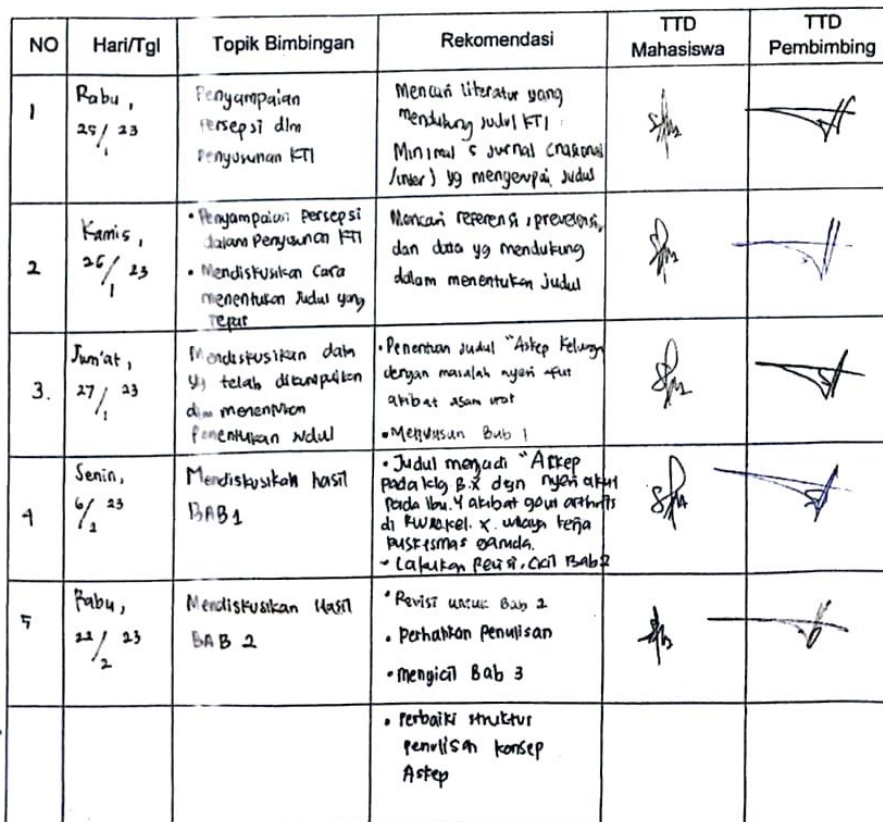 NO Hari/Tgl Topik Bimbingan Rekomendasi TTD Mahasiswa TTD Pembimbing
1
Rabu,
25/1 23
Penyampaian
Persepsi dlm
Penyusunan KTI
Mencari literatur yang
mendukung judul KTI
Minimal 5 jurnal (nasional
/inter) yg menyerupai judul
2
Kamis,
26/1 23
• Penyampaian Persepsi
dalam Penyusunan KTI
• Mendiskusikan Cara
menentukan Judul yang
Tepat
Mencari referensi, prevelensi,
dan data yg mendukung
dalam menentukan judul
3.
Jum'at,
27/1 23
Mendiskusikan data
yg telah dikumpulkan
dlm menentukan
Penentukan Judul
• Penentuan Judul "Askep Keluarga
dengan masalah nyeri akut
akibat asam urat
• Menyusun Bab 1
4
Senin,
6/2 23
Mendiskusikan hasil
BAB 1
• Judul menjadi "Askep
Pada klg B.X dgn nyeri akut
Pada Ibu.Y akibat gout arthritis
di kel. X. wilaya kerja
puskesmas
- Lakukan Revisi, Cicil Bab 2
5
Rabu,
22/2 23
Mendiskusikan Hasil
BAB 2
• Revisi untuk Bab 2
• Perhatikan Penulisan
• mengicil Bab 3
• Perbaiki struktur
Penulisan konsep
Askep